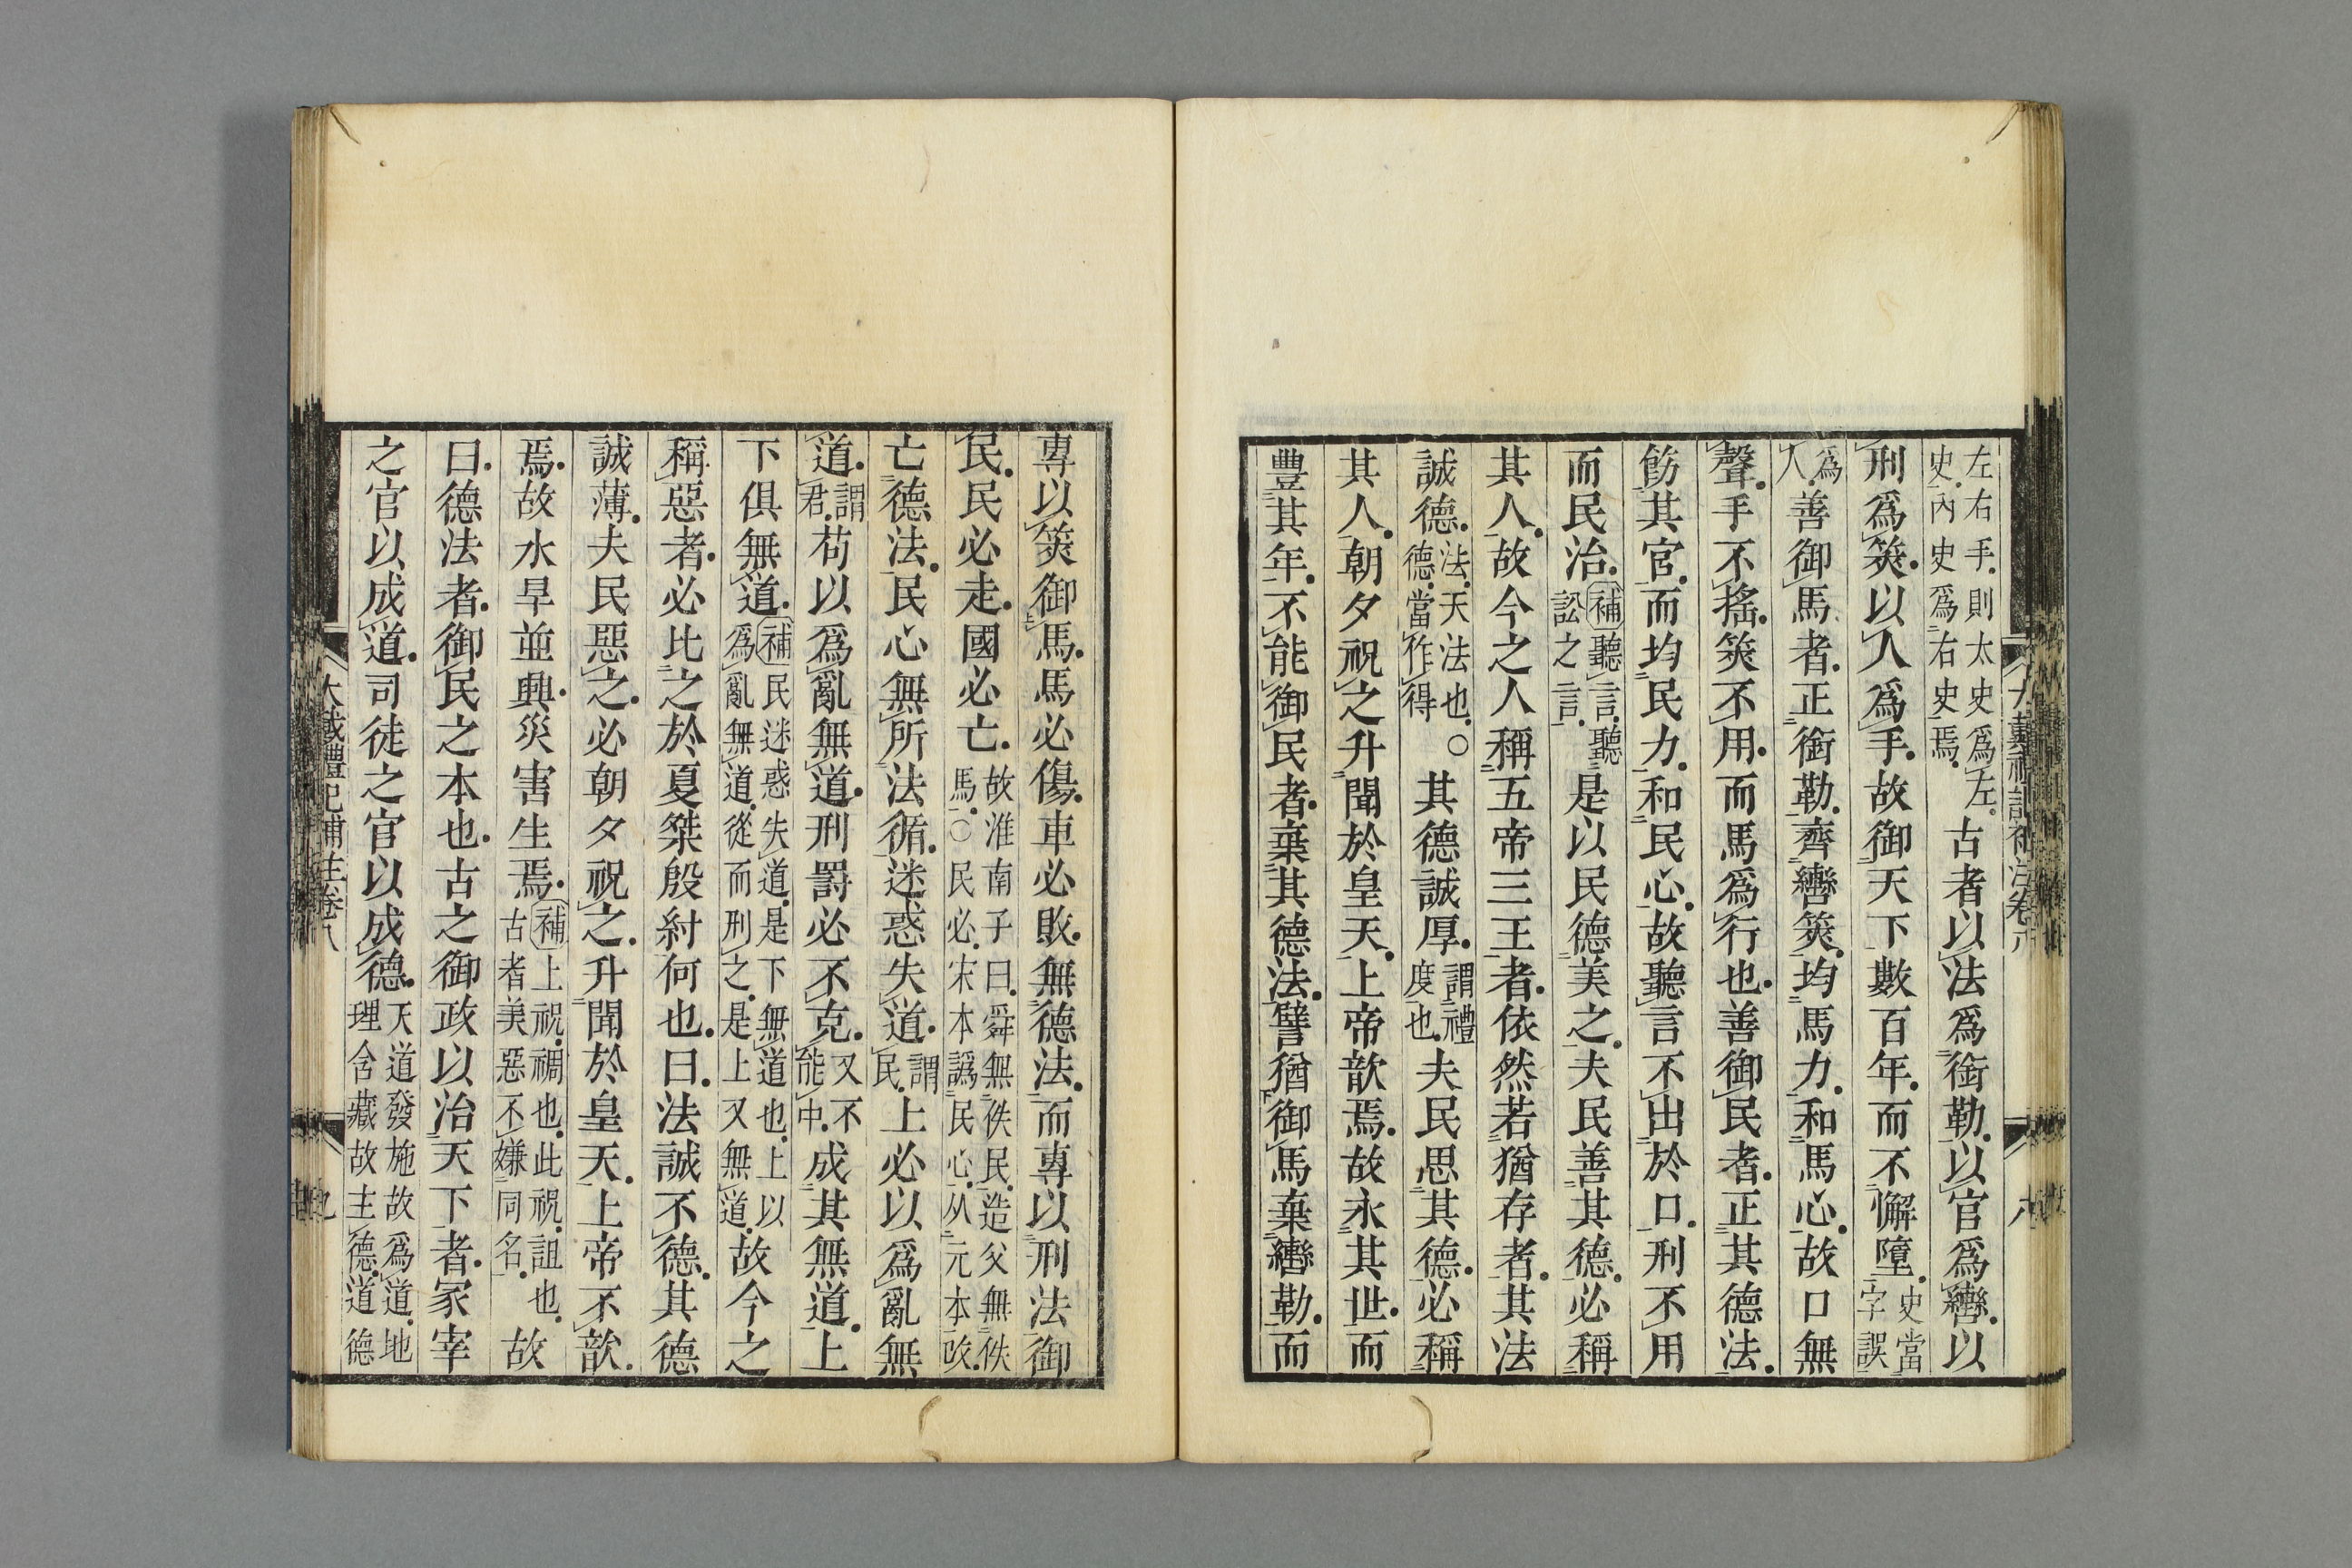 左右手則太史爲左
史內史爲右史焉古者以法爲銜勒以官爲轡以
刑爲筴以人爲手故御天下數百年而不懈墮史當
字誤
爲
人善御馬者正銜勒齊轡筴均馬力和馬心故口無
聲手不搖筴不用而馬爲行也善御民者正其德法
飭其官而均民力和民心故聽言不出於口刑不用
而民治補聽言聽
訟之言是以民德美之夫民善其德必稱
其人故今之人稱五帝三王者依然若猶存者其法
誠德法天法也
德當作得○其德誠厚謂禮
度也夫民思其德必稱
其人朝夕祝之升聞於皇天上帝歆焉故永其世而
豐其年不能御民者棄其德法譬猶御馬棄轡勒而
大戴禮記補注卷八
八
專以筴御馬馬必傷車必敗無德法而專以刑法御
民民必走國必亡故淮南子曰舜無佚民造父無佚
馬○民必宋本譌民心从元本改
亡德法民心無所法循迷惑失道謂
民上必以爲亂無
道謂
君苟以爲亂無道刑罰必不克又不
能中成其無道上
下俱無道補民迷惑失道是下無道也上以
爲亂無道從而刑之是上又無道故今之
稱惡者必比之於夏桀殷紂何也曰法誠不德其德
誠薄夫民惡之必朝夕祝之升聞於皇天上帝不歆
焉故水旱並興災害生焉補上祝禂也此祝詛也
古者美惡不嫌同名故
曰德法者御民之本也古之御政以治天下者冢宰
之官以成道司徒之官以成德天道發施故爲道地
理含藏故主德道德
大戴禮記補注卷八
九